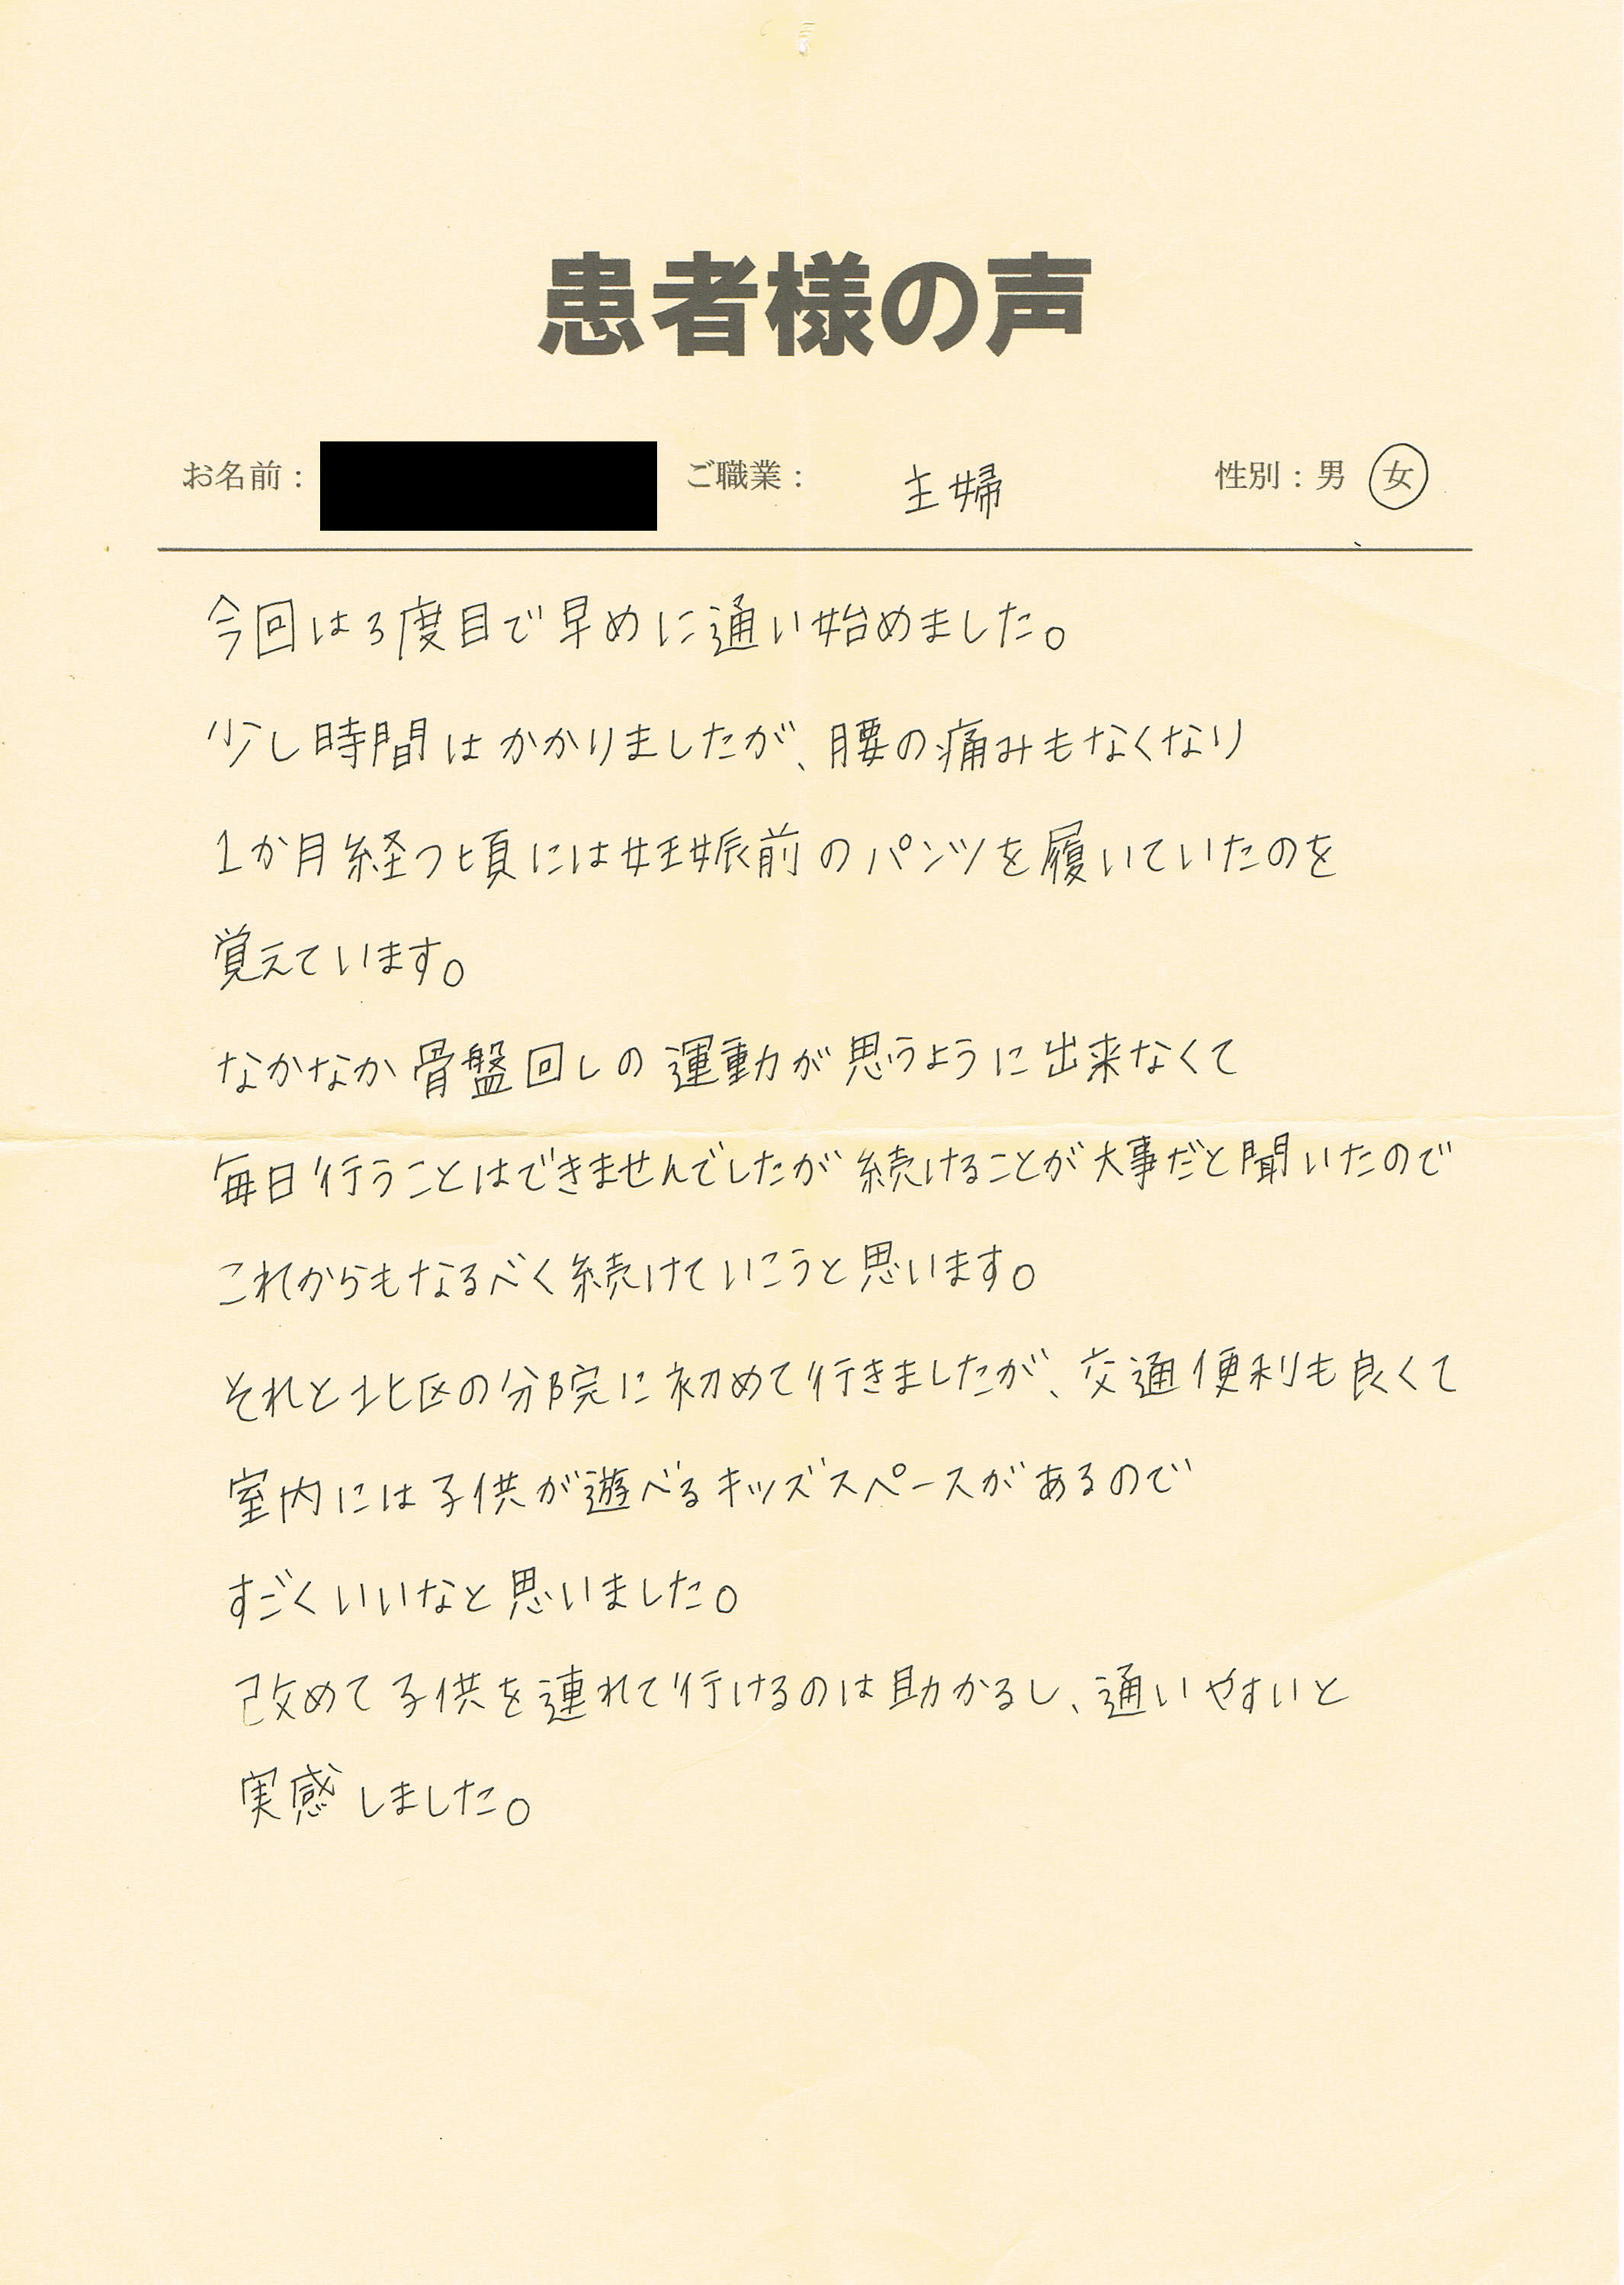 患者様の声
お名前： ご職業： 主婦 性別：男 女
今回は3度目で早めに通い始めました。
少し時間はかかりましたが、腰の痛みもなくなり
1か月経つ頃には妊娠前のパンツを履いていたのを
覚えています。
なかなか骨盤回しの運動が思うように出来なくて
毎日行うことはできませんでしたが続けることが大事だと聞いたので
これからもなるべく続けていこうと思います。
それと北区の分院に初めて行きましたが、交通便利も良くて
室内には子供が遊べるキッズスペースがあるので
すごくいいなと思いました。
改めて子供を連れて行けるのは助かるし、通いやすいと
実感しました。